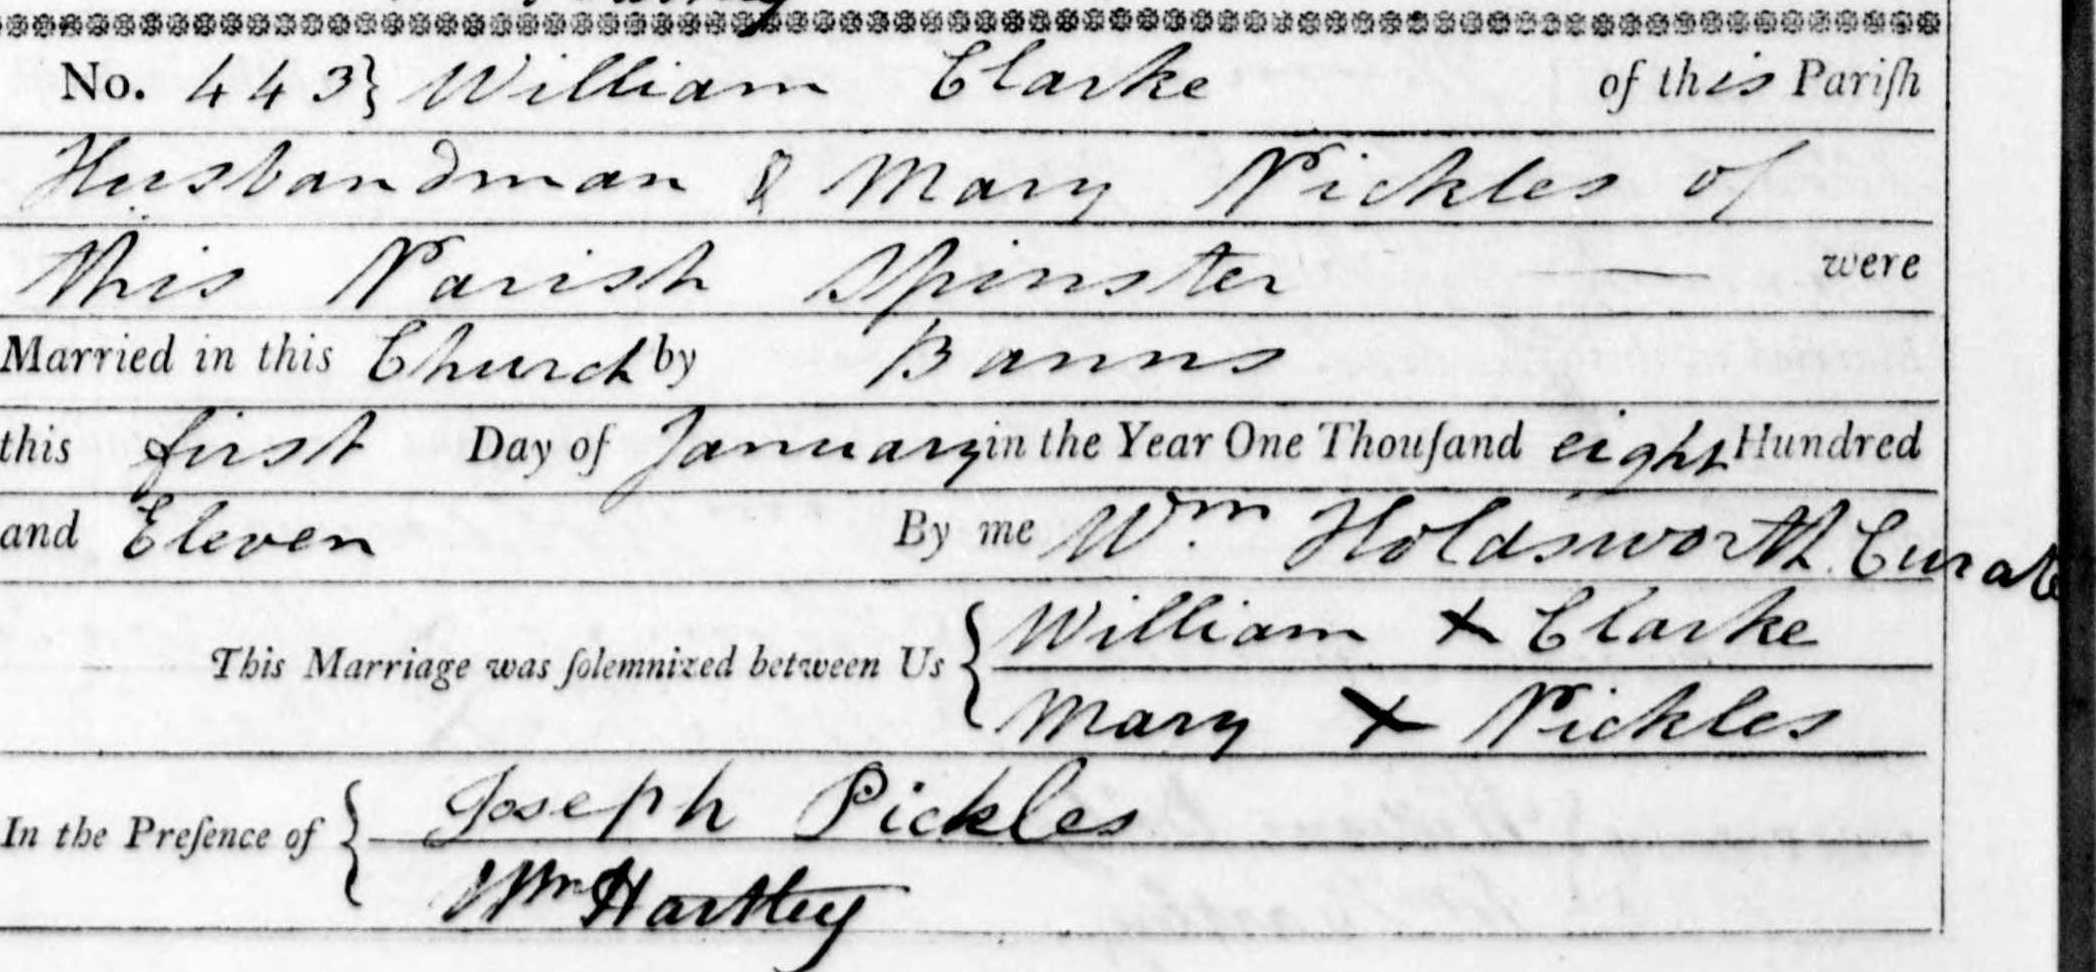 No. 443} William Clarke of this Pariſh
Husbandman & Mary Pickles of
this Parish Spinster — were
Married in this Church by Banns
this first Day of January in the Year One Thouſand eight Hundred
and Eleven By me Wm Holdsworth Curate
This Marriage was ſolemnized between Us { William X Clarke
Mary X Pickles
In the Preſence of { Joseph Pickles
Wm Hartley